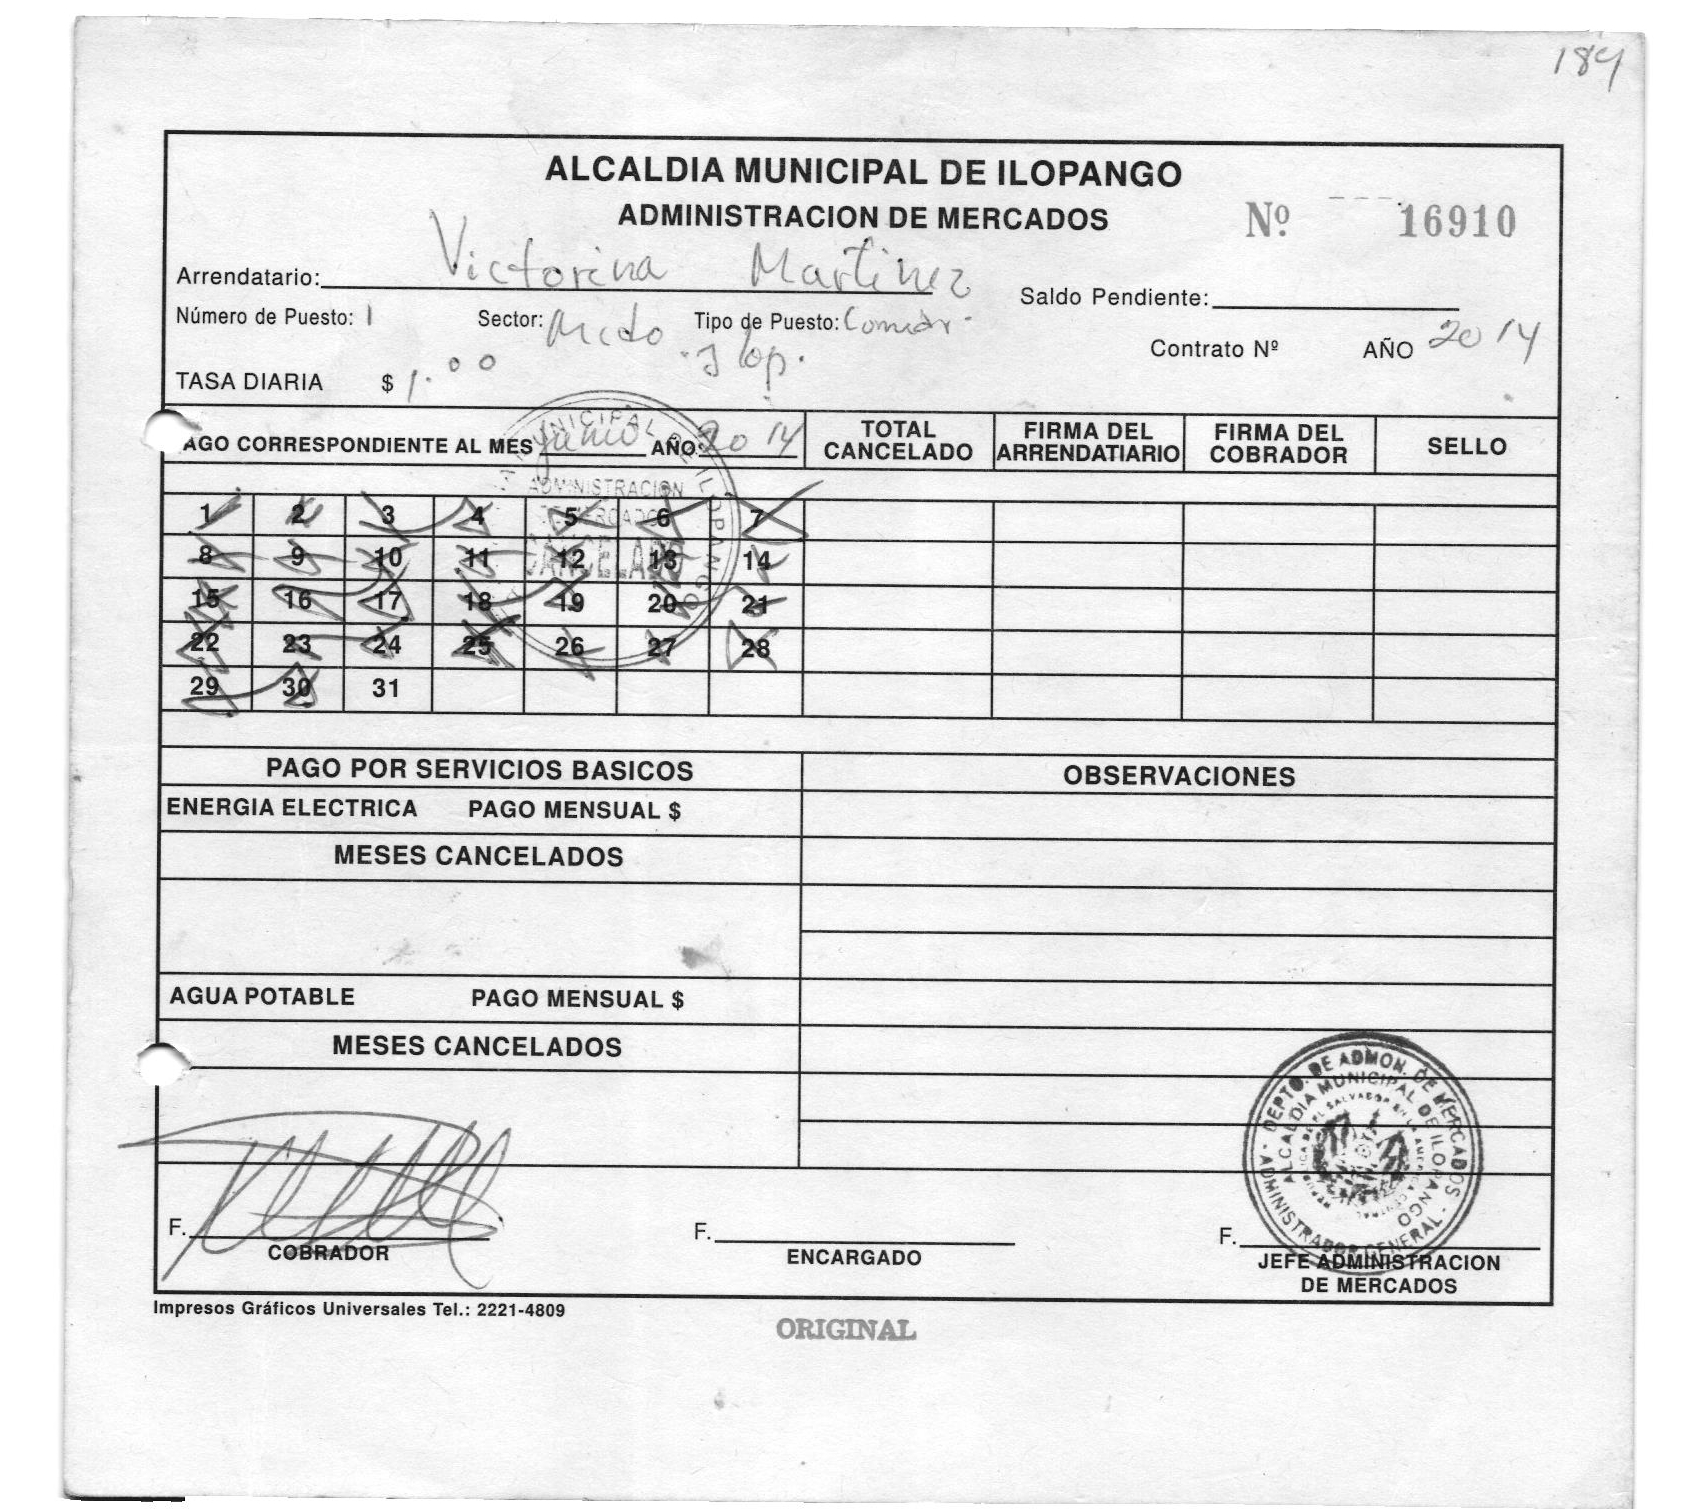 184
ALCALDIA MUNICIPAL DE ILOPANGO
ADMINISTRACION DE MERCADOS
Nº 16910
Arrendatario: Victorina Martinez
Saldo Pendiente:
Número de Puesto: 1 Sector: Mcdo Ilop. Tipo de Puesto: Comedr.
Contrato Nº AÑO 2014
TASA DIARIA $ 1.00
AGO CORRESPONDIENTE AL MES junio AÑO: 2014
TOTAL CANCELADO
FIRMA DEL ARRENDATIARIO
FIRMA DEL COBRADOR
SELLO
1 2 3 4 5 6 7
8 9 10 11 12 13 14
15 16 17 18 19 20 21
22 23 24 25 26 27 28
29 30 31
MUNICIPAL DE ILOPANGO
ADMINISTRACION
DE MERCADOS
CANCELADO
PAGO POR SERVICIOS BASICOS
OBSERVACIONES
ENERGIA ELECTRICA PAGO MENSUAL $
MESES CANCELADOS
AGUA POTABLE PAGO MENSUAL $
MESES CANCELADOS
DEPTO. DE ADMON. DE MERCADOS
ALCALDIA MUNICIPAL DE ILOPANGO
REPUBLICA DE EL SALVADOR EN LA AMERICA CENTRAL
ADMINISTRADOR GENERAL
F.
COBRADOR
F.
ENCARGADO
F.
JEFE ADMINISTRACION
DE MERCADOS
Impresos Gráficos Universales Tel.: 2221-4809
ORIGINAL